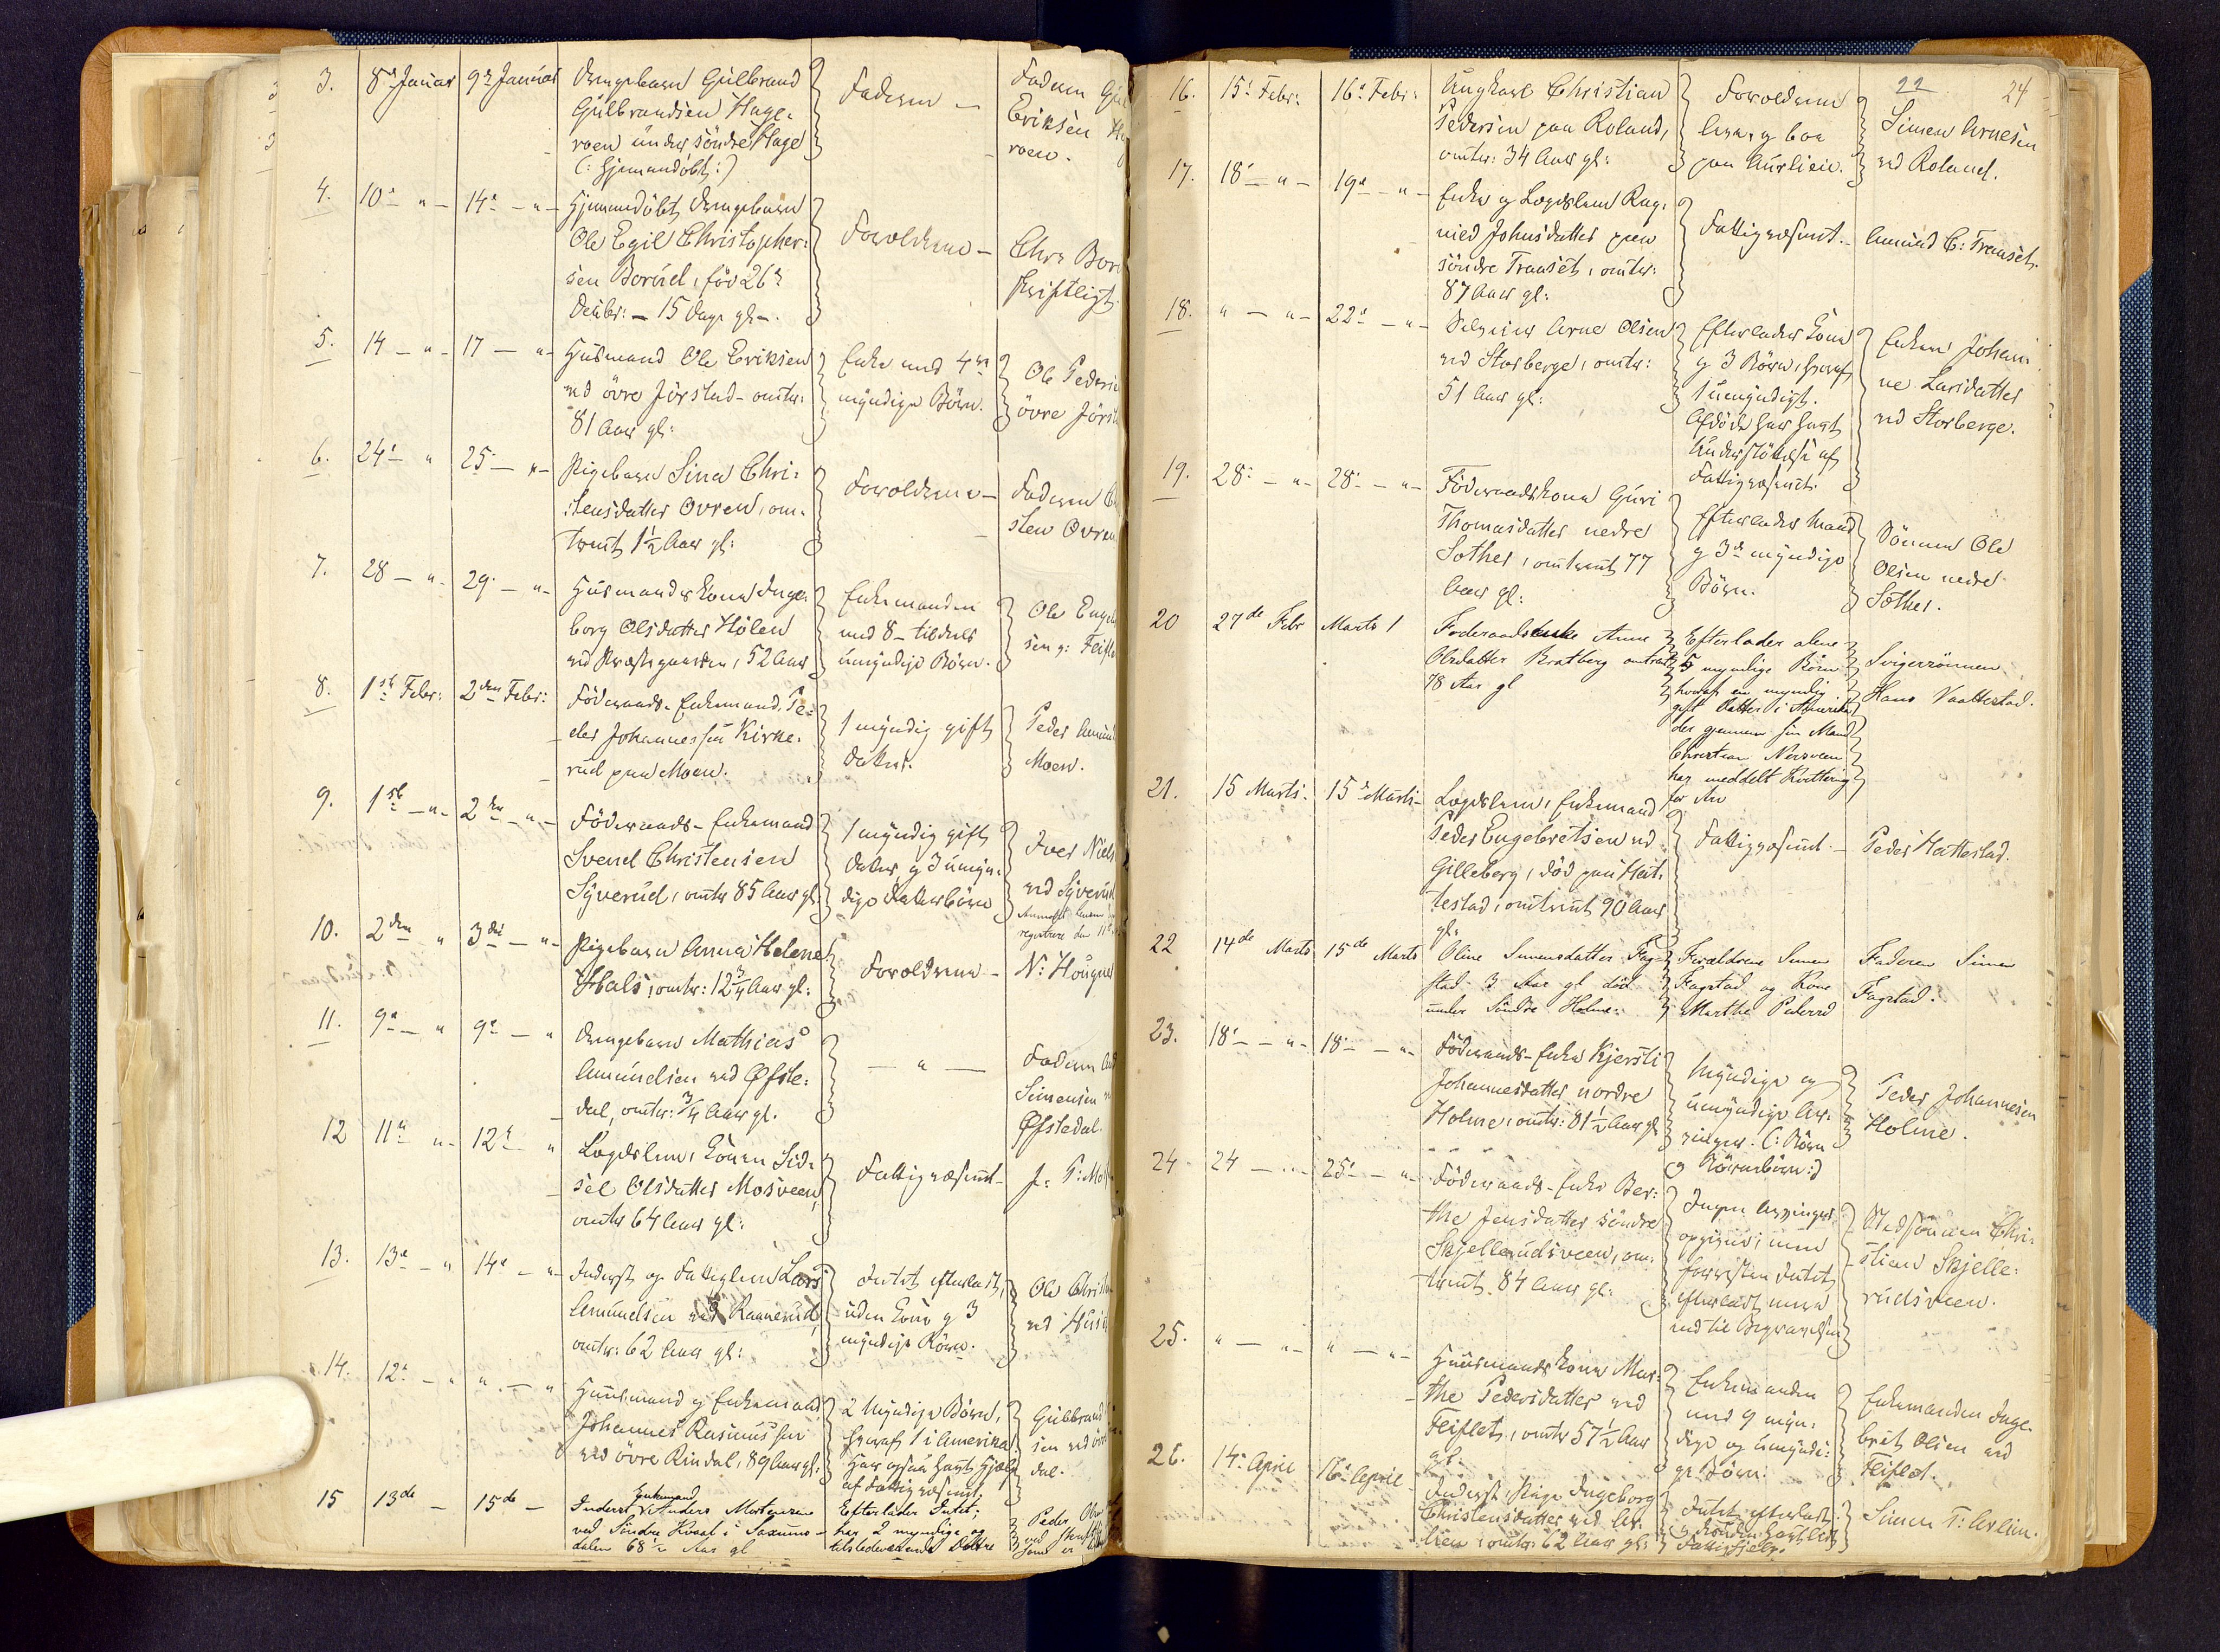 3. 8de Januar 9de Januar Drengebarn Gulbrand
Gulbrandsen Hage-
roen under söndre Hage
(: Hjemmedöbt :)
Faderen —
Faderen Gul
Eriksen
roen.
4. 10de " — 14de — " — Hjemmedöbt Drengebarn
Ole Egil Christopher-
sen Borud, föd 26de
Decbr: — 15 Dage gl —.
Forældrene —
Chr. Bor
skriftligt.
5. 14 — " — 17 — " — Husmand Ole Eriksen
ved övre Jörstad — omtr.
81 Aar gl:
Enke med 4re
myndige Börn.
Ole Peders
övre Jörst
6. 24de — " 25 — " — Pigebarn Sina Chri-
stensdatter Ovren, om-
trent 1½ Aar gl:
Forældrene —
Faderen C
sten Ovren
7. 28 — " — 29 — " — Husmandskone Inge-
borg Olsdatter Hölen
ved Præstegaarden, 52 Aar
Enkemanden
med 8 — tildels
umyndige Börn.
Ole Enge
sen
8. 1ste Febr: 2den Febr: Föderaads-Enkemand Pe-
der Johannessen Kirke-
rud paa Moen.
1 myndig gift
Datter.
Peder Amund
Moen.
9. 1ste — " — 2den — " — Föderaads-Enkemand
Svend Christensen
Syverud, omtr 85 Aar gl.
1 myndig gift
Datter og 3 umyn-
dige Datterbörn
Iver Niels
ved Syverud
10. 2den " 3die — " — Pigebarn Anna Helene
Hals, omtr: 12¾ Aar gl:
Forældrene —
N: Hougne
11. 9de — " 9de — " Drengebarn Mathias
Amundsen ved Øfste-
dal, omtr: ¾ Aar gl.
— " —
Faderen
Simensen
Øfstedal.
12 11te " — 12te " Lægdslem, Konen Sid-
sel Olsdatter Mosveen,
omtr 64 Aar gl:
Fattigvæsenet —
13. 13de — " 14de — " — Inderst og Fattiglem Lars
Amundsen ved Raanerud,
omtr: 62 Aar gl:
Intet efterladt,
uden Kone og 3
myndige Börn.
Ole Christ
ved
14. 12te — " " — " Huusmand og Enkemand
Johannes Rasmussen
ved övre Rindal, 89 Aar gl:
2 Myndige Börn,
hvoraf 1 i Amerika
Har ogsaa havt Hjælp
af Fattigvæsenet.
Gulbrand
sen ved övre
dal.
15 13de — 15de — Inderst Enkemand Anders Mortensen
ved Söndre Kvaal i Saxums-
dalen 68½ Aar gl
Efterlader Intet;
har 2 myndige og
tilstedeværende Döttre
Peder Ols
22
24
16. 15de Febr: 16de Febr: Ungkarl Christian
Pedersen paa Roland,
omtr: 34 Aar gl:
Forældrene
lever og boe
paa Aurlien.
Simen Arnesen
ved Roland.
17. 18de — " — 19de — " — Enke og Lægdslem Rag-
nild Johnsdatter paa
söndre Traaset, omtr:
87 Aar gl:
Fattigvæsenet. —
Amund C: Traaset.
18. " — " — 22de — " — Selveier Arne Olsen
ved Storberge, omtr:
51 Aar gl:
Efterlader Kone
og 3 Börn, hvoraf
1 umyndigt.
Afdöde har havt
Understöttelse af
Fattigvæsenet.
Enken Johan-
ne Larsdatter
ved Storberge.
19. 28de — " — 28de — " — Föderaadskone Guri
Thomasdatter nedre
Sother, omtrent 77
Aar gl:
Efterlader Mand
og 3de myndige
Börn.
Sönnen Ole
Olsen nedre
Sother.
20 27de Febr Marts 1 Foderaadsenke Anne
Olsdatter Bratberg omtrent
78 Aar gl
Efterlader alene
5 myndige Börn
hvoraf en myndig
gift Datter i Amerika
der gjennem sin Mand
Christian Nersveen
har meddelt Kvittering
for Arv
Svigersönnen
Hans Vaattestad.
21. 15 Marts. 15de Marts — Lægdslem, Enkemand
Peder Engebretsen ved
Gilleberg, död paa Hat-
testad, omtrent 90 Aar
gl.
Fattigvæsenet —
Peder Hattestad.
22 14de Marts 15de Marts Oline Simensdatter Fag-
stad 3 Aar gl död
under Söndre Holme.
Forældrene Simen
Fagstad og Kone
Marthe Pedersd
Faderen Simen
Fagstad.
23. 18de — " — 18de — " — Föderaads-Enke Kjersti
Johannesdatter nordre
Holme, omtr: 81½ Aar gl
Myndige og
umyndige Ar-
vinger. (: Börn
og Börnebörn :)
Peder Johannesen
Holme.
24 24 — " — 25de — " — Föderaads-Enke Ber-
the Jensdatter söndre
Skjellerudsveen, om-
trent 84 Aar gl:
Ingen Arvinger
opgivne; men
forresten Intet
efterladt mere
end til Begravelsen
Stedsönnen Chri-
stian Skjelle-
rudsveen.
25. " — " — " — " — Huusmandskone Mar-
the Pedersdatter ved
Feiflet, omtr 57½ Aar
gl:
Enkemanden
med 9 myn-
dige og umyndi-
ge Börn.
Enkemanden Inge-
bret Olsen ved
Feiflet.
26. 14de April 16de April — Inderst, Pige Ingeborg
Christensdatter ved Ar-
lien, omtr: 62 Aar gl:
Intet efterladt
Fattighjelp.
Simen T: Arlien.